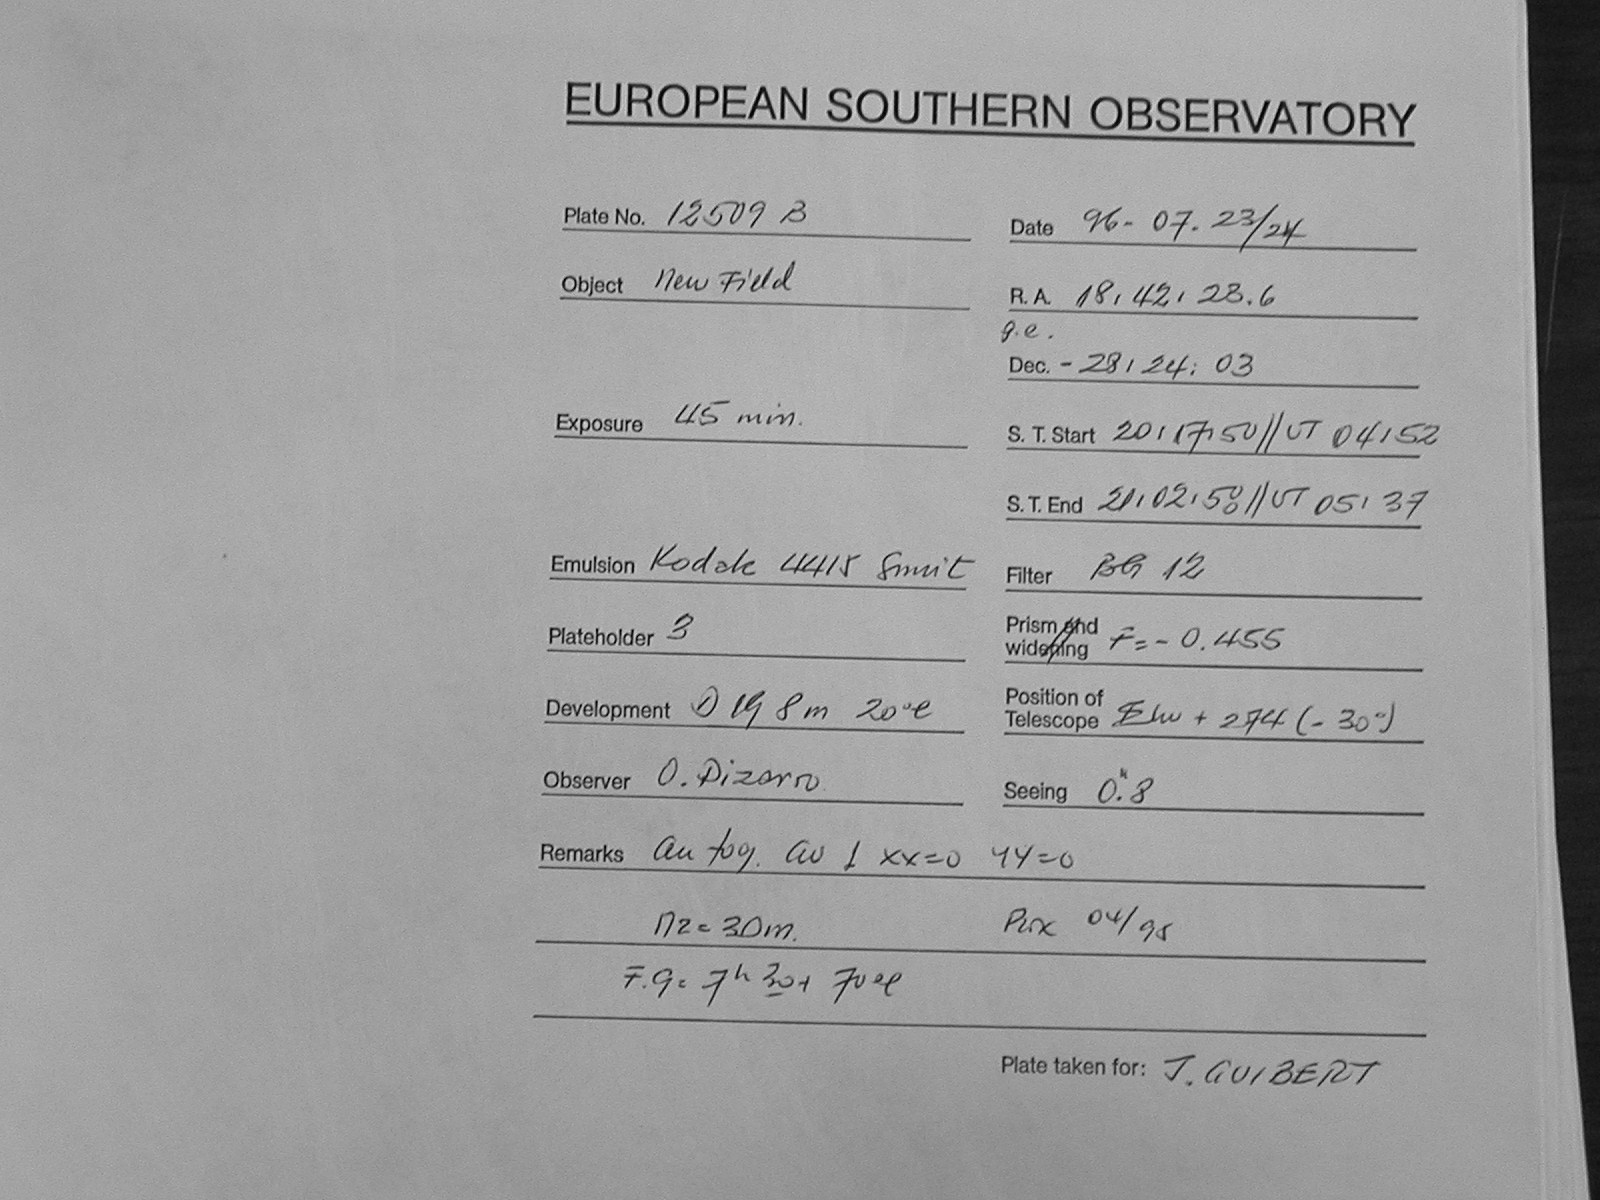 EUROPEAN SOUTHERN OBSERVATORY
Plate No. 12509 B
Date 96-07.23/24
Object New Field
R. A. 18: 42: 23.6
g.e.
Dec. - 28: 24: 03
Exposure 45 min.
S. T. Start 20: 17: 50 // UT 04: 52
S. T. End 21: 02: 50 // UT 05: 37
Emulsion Kodak 4415
Filter BG 12
Plateholder 3
Prism and widening F = - 0.455
Development D 19 8m 20°C
Position of Telescope + 274 (- 30°)
Observer O. Pizarro
Seeing 0."8
Remarks xx=0 YY=0
N2= 30m. 04/95
F.G= 7h 30+
Plate taken for: J. GUIBERT